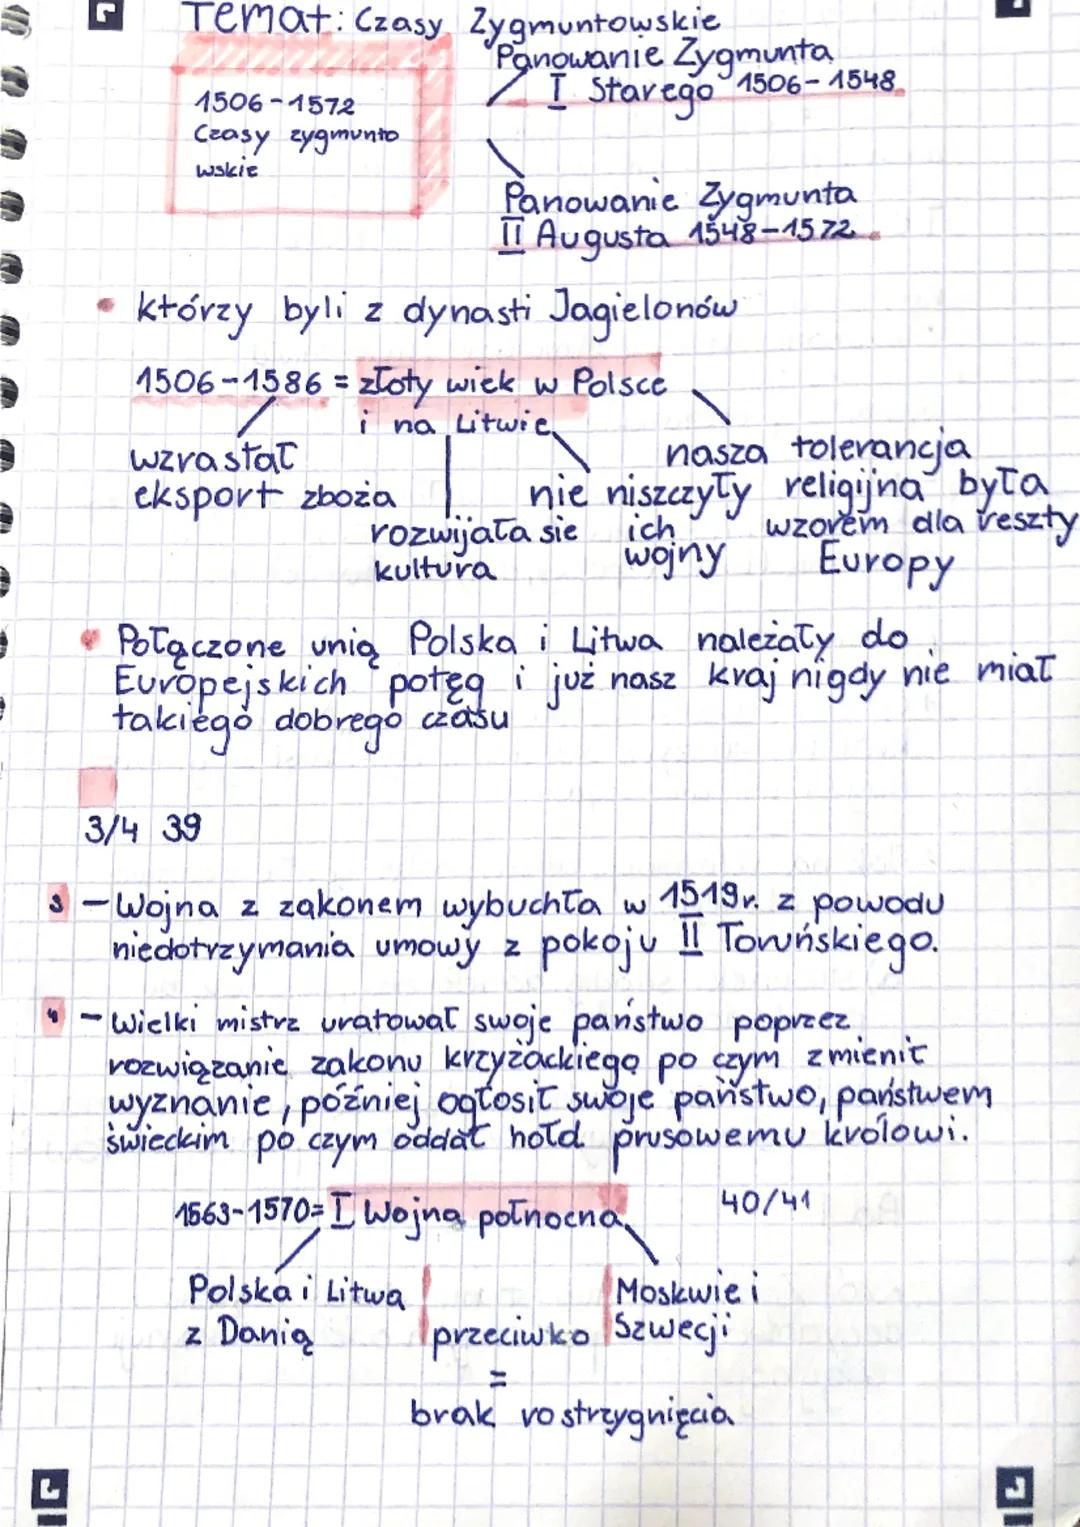 Temat: Czasy Zygmuntowskie
1506-1572
Czasy zygmunto
wskie
Panowanie Zygmunta
I Starego 1506-1548
Panowanie Zygmunta
II Augusta 1548-1572
• którzy byli z dynasti Jagielonów
1506-1586 = złoty wiek w Polsce
i na Litwie
wzrastał
eksport zboża
rozwijała sie
kultura
nie niszczyły
ich
wojny
nasza tolerancja
religijna była
wzorem dla reszty
Europy
• Połączone unią Polska i Litwa należały do
Europejskich potęg i już nasz kraj nigdy nie miał
takiego dobrego czasu
3/4 39
3 - Wojna z zakonem wybuchła w 1519r. z powodu
niedotrzymania umowy z pokoju II Toruńskiego.
4 - Wielki mistrz uratował swoje państwo poprzez
rozwiązanie zakonu krzyżackiego po czym zmienił
wyznanie, później ogłosił swoje państwo, państwem
świeckim po czym oddał hołd prusowemu królowi.
1563-1570= I Wojna północna
40/41
Polska i Litwa
z Danią
przeciwko
Moskwie i
Szwecji
=
brak rostrzygnięcia